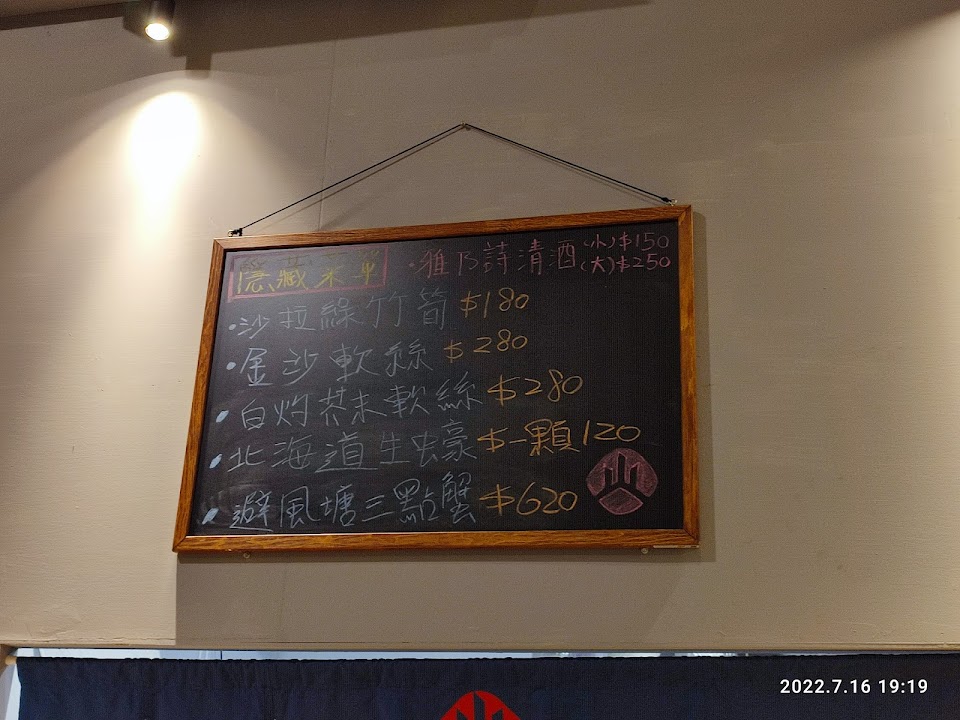 隱藏菜單
·雅乃詩清酒(小)$150
(大)$250
·沙拉綠竹筍 $180
·金沙軟絲 $280
·白灼芥末軟絲 $280
·北海道生蠔 $一顆120
·避風塘三點蟹 $620
2022.7.16 19:19